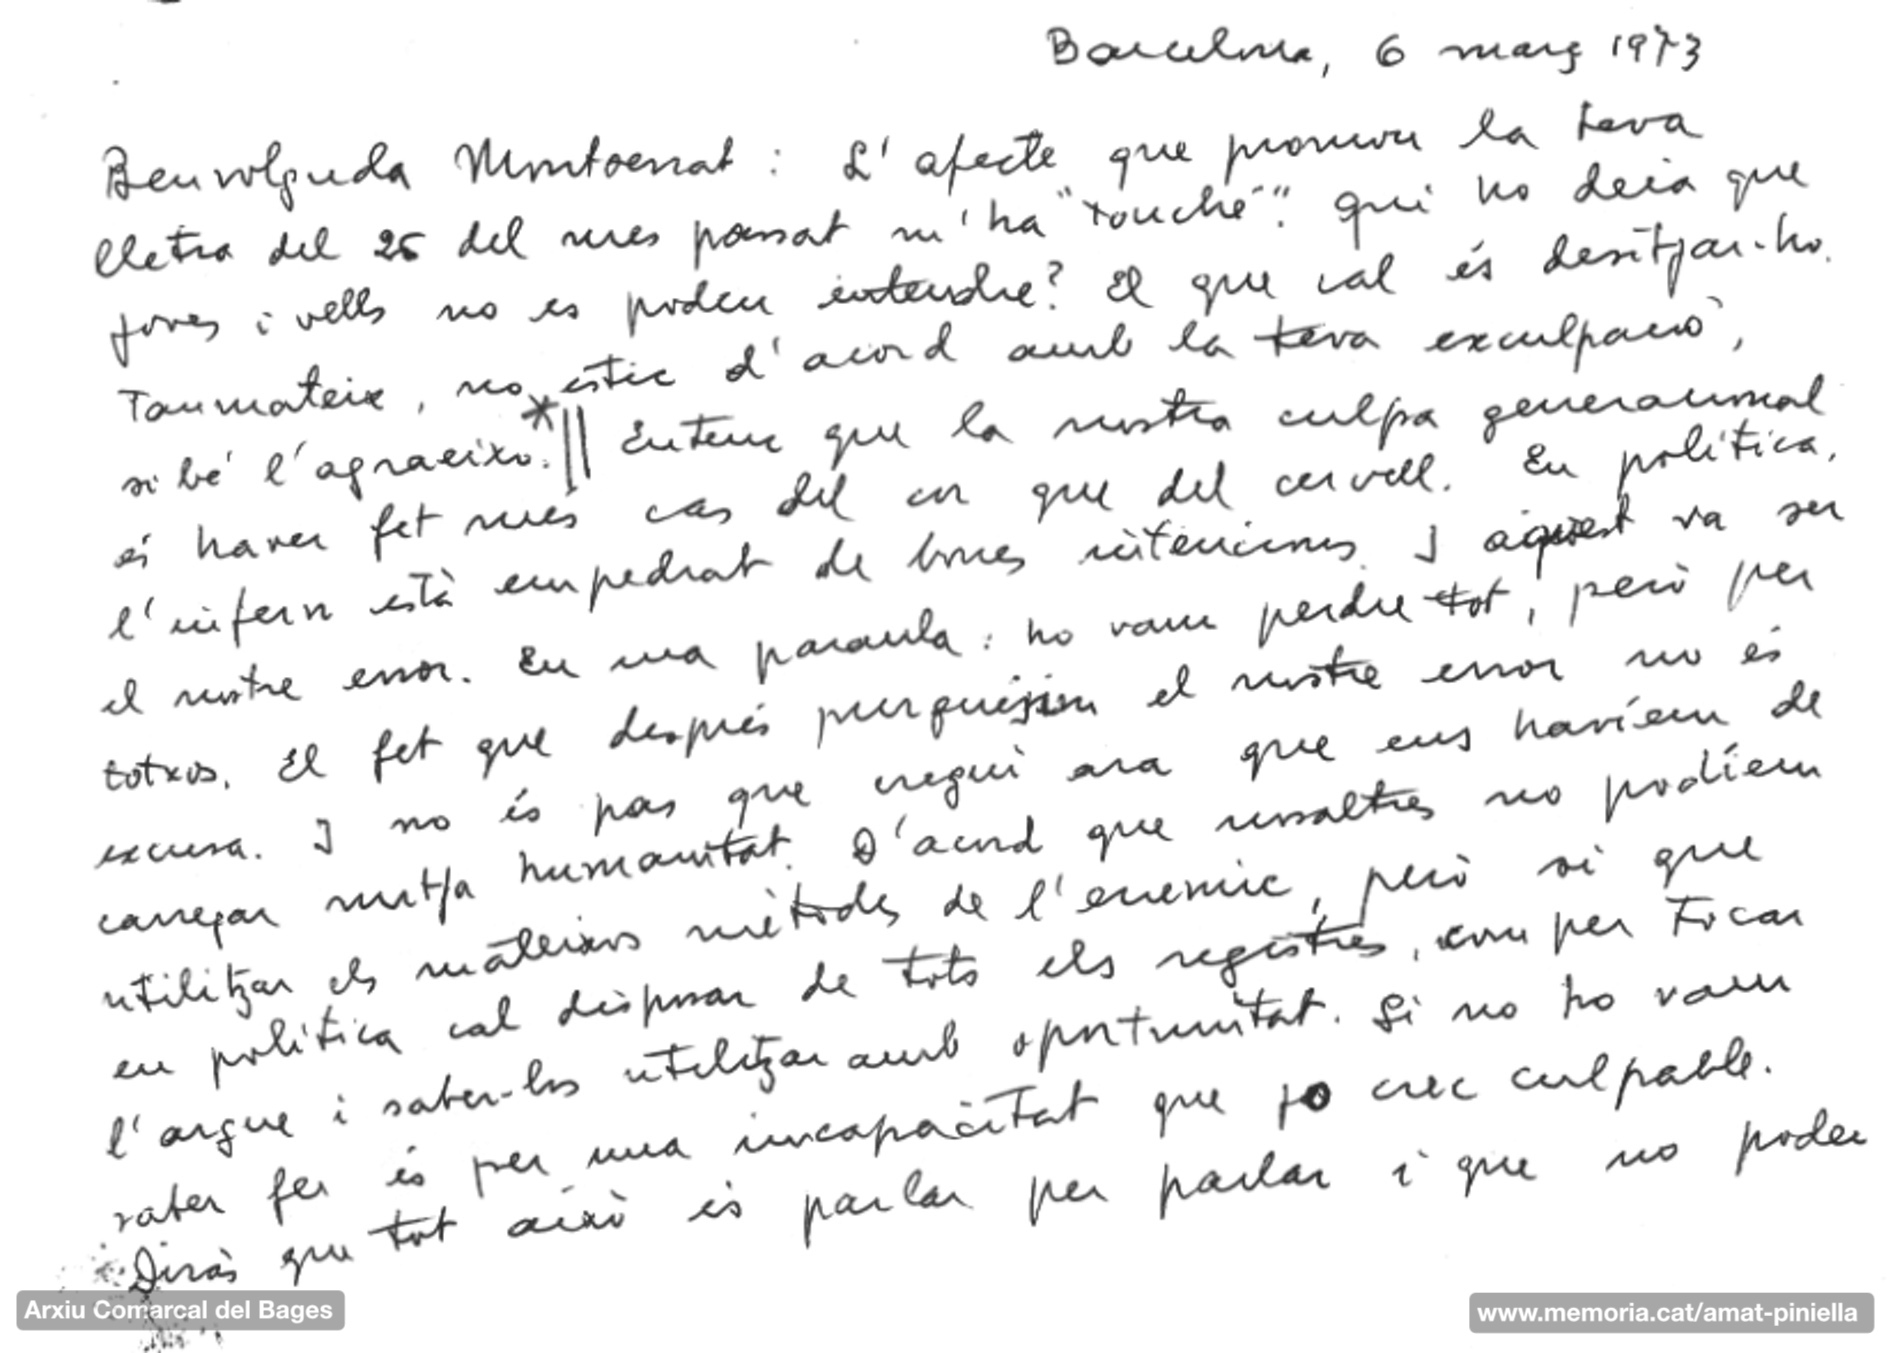 Barcelona, 6 març 1973
Benvolguda Montserrat: L'afecte que promou la teva
lletra del 25 del mes passat m'ha "touché". Qui ho deia que
joves i vells no es poden entendre? El que cal és desitjar-ho.
Tanmateix, no estic d'acord amb la teva exculpació,
si bé l'agraeixo.*|| Entenc que la nostra culpa generacional
és haver fet més cas del cor que del cervell. En política,
l'infern està empedrat de bones intencions. I aquest va ser
el nostre error. En una paraula: ho vam perdre tot, però per
totxos. El fet que després purguéssim el nostre error no és
excusa. I no és pas que cregui ara que ens havíem de
carregar mitja humanitat. D'acord que nosaltres no podíem
utilitzar els mateixos mètodes de l'enemic, però si que
en política cal disposar de tots els registres, com per tocar
l'orgue i saber-los utilitzar amb oportunitat. Si no ho vam
saber fer és per una incapacitat que jo crec culpable.
Diràs que tot això és parlar per parlar i que no poden
Arxiu Comarcal del Bages
www.memoria.cat/amat-piniella